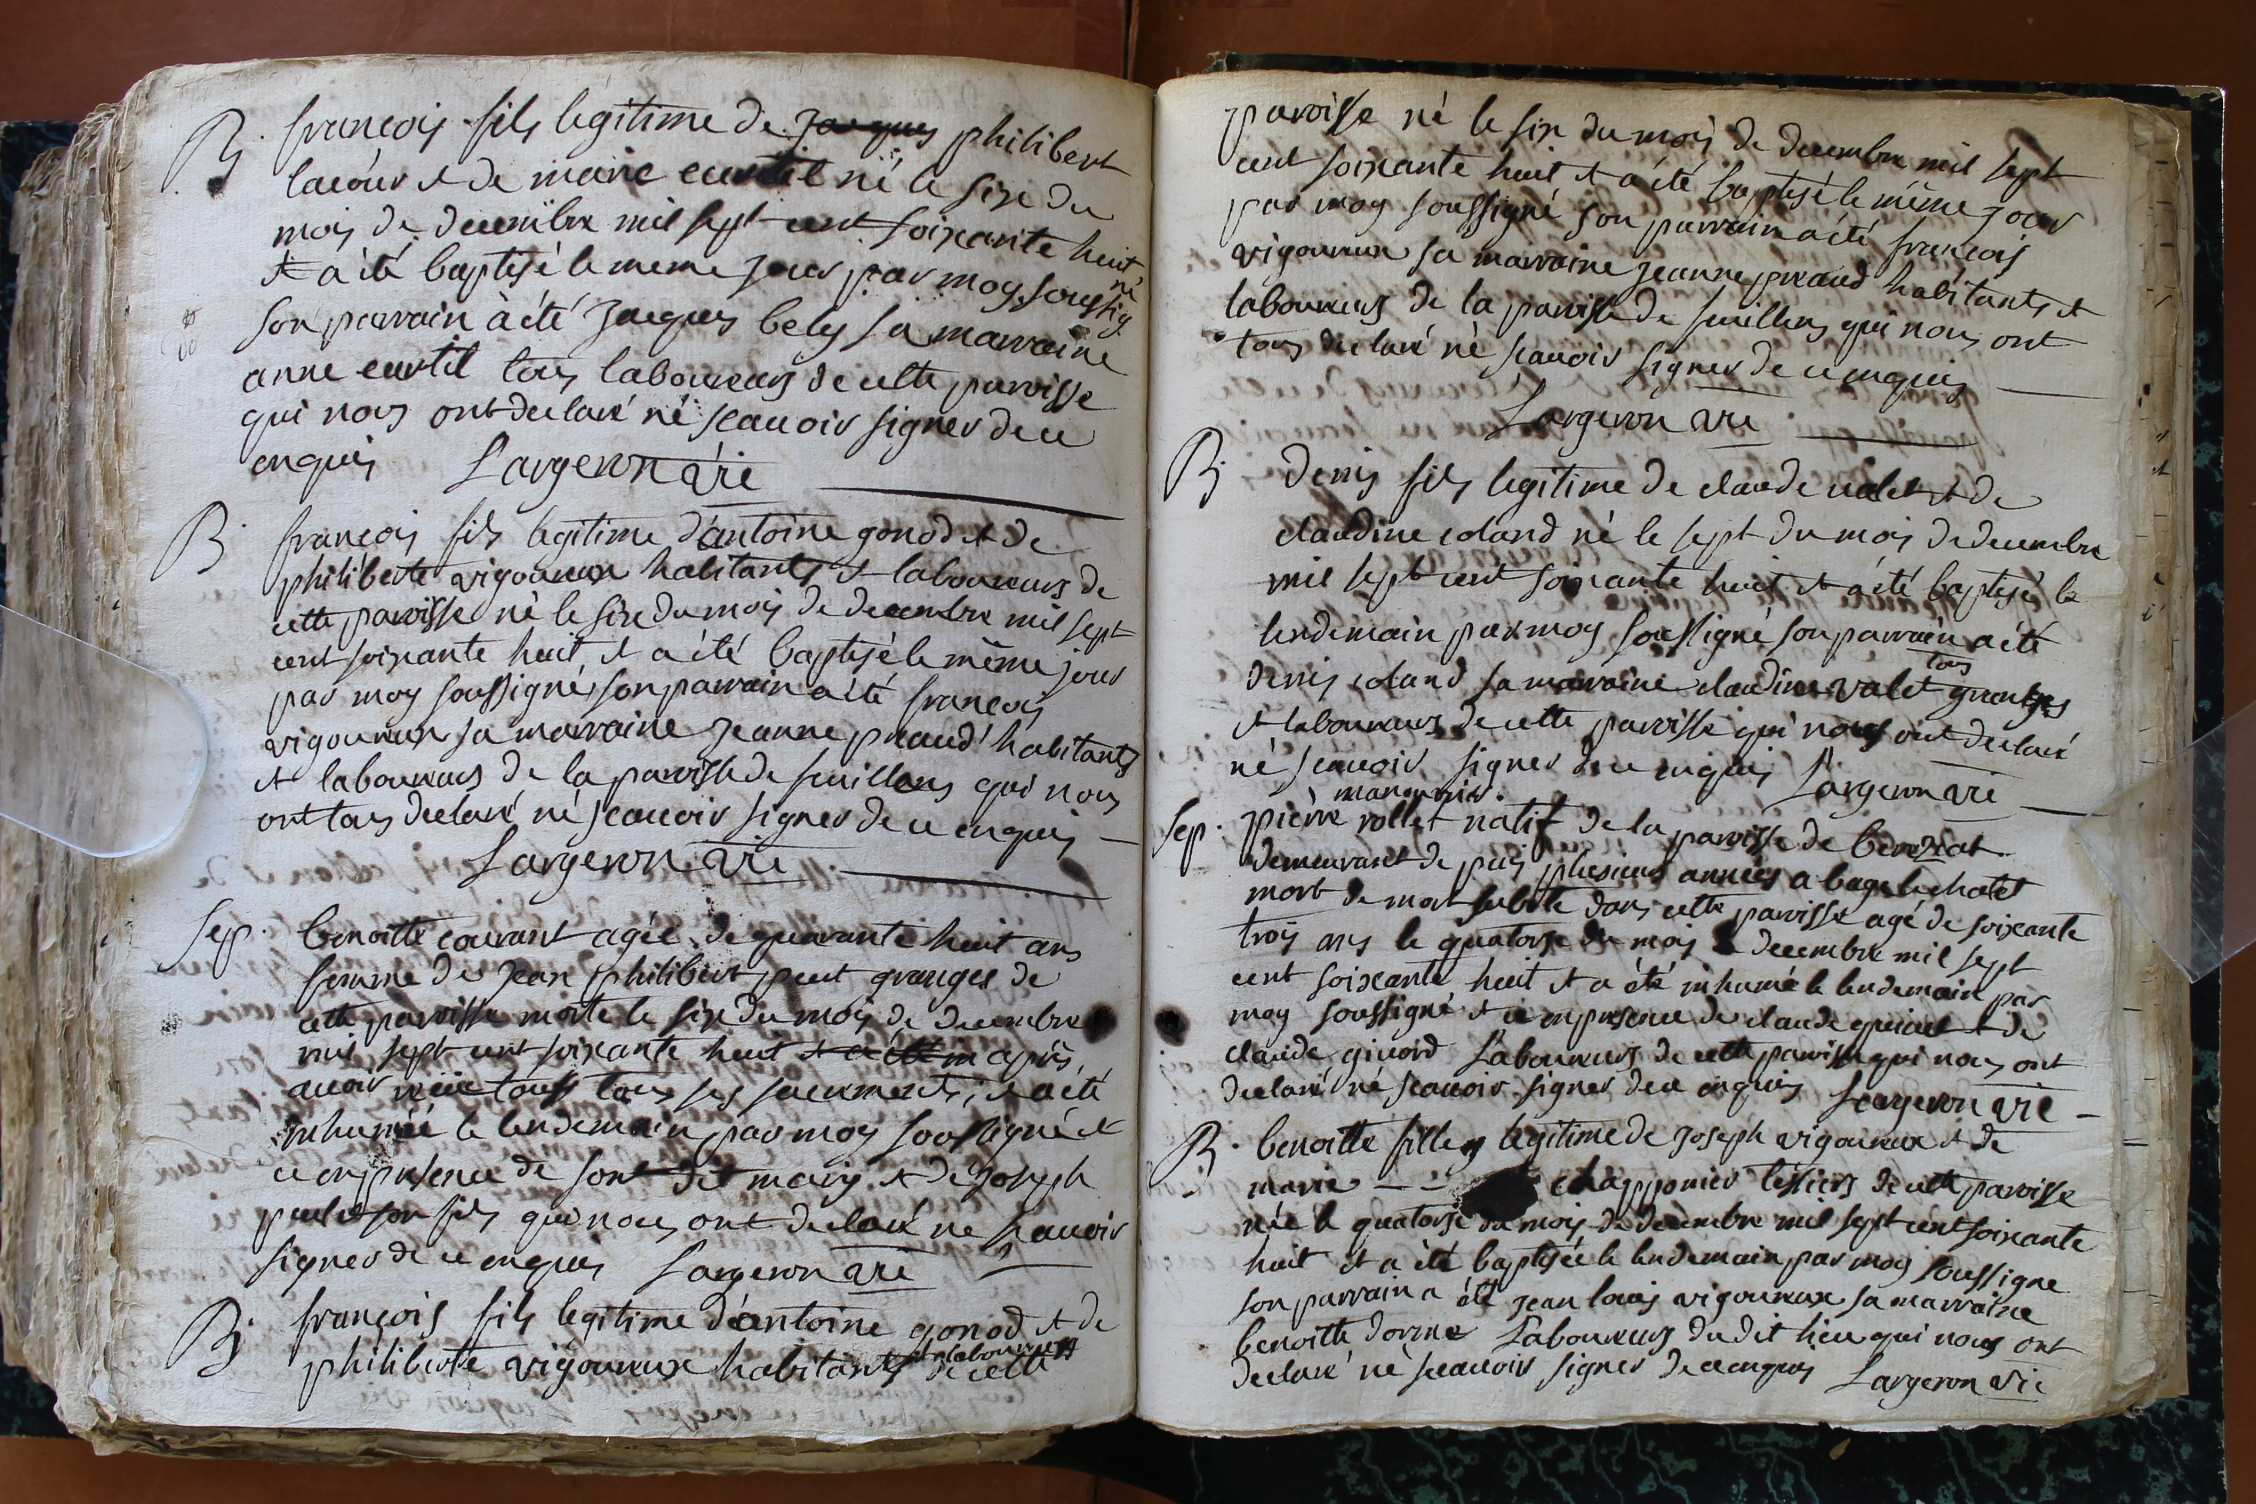 B. françois fils legitime de Jacques philibert
lacour et de marie curtil né le six du
mois de decembre mil sept cent soixante huit
et a été baptisé le meme jour par moy soussigné
son parrain à été Jacques bely sa marraine
anne curtil tous laboureurs de cette paroisse
qui nous ont declaré né scauoir signer de ce
enquis Largeron vic
B. françois fils legitime d'antoine gonod et de
philiberte vigoureux habitants et laboureurs de
cette paroisse né le six du mois de decembre mil sept
cent soixante huit et a été baptisé le même jour
par moy soussigné, son parrain a été françois
vigoureux sa marraine jeanne preaud habitants
et laboureurs de la paroisse de feuillens qui nous
ont tous declaré né scauoir signer de ce enquis
Largeron vic
Sep. benoitte courant agée de quarante huit ans
femme de jean philibert peut granger de
cette paroisse morte le six du mois de decembre
mil sept cent soixante huit et a été in après
auoir reçue touss tous ses sacrements, et a été
inhumée le lendemain par moy soussigné et
ce en presence de sont dit mary et de joseph
son fils qui nous ont declaré ne scauoir
signer de ce enquis Largeron vic
B. françois fils legitime d'antoine gonod et de
philiberte vigoureux habitants et laboureurs de cette
paroisse né le six du mois de decembre mil sept
cent soixante huit et a été baptisé le même jour
par moy soussigné son parrain a été françois
vigoureux sa marraine jeanne preaud habitants et
laboureurs de la paroisse de feuillens qui nous ont
tous declaré né scauoir signer de ce enquis
Largeron vic
B. denis fils legitime de claude valet et de
claudine coland né le sept du mois de decembre
mil sept cent soixante huit et a été baptisé le
lendemain par moy soussigné son parrain a été
denis coland sa marraine claudine valet tous grangers
et laboureurs de cette paroisse qui nous ont declaré
né scauoir signer de ce enquis Largeron vic
manouvrier
Sep. pierre rollet natif de la paroisse de bereziat
demeurant de puis plusieurs années a bage le chatel
mort de mort subite dans cette paroisse agé de soixante
trois ans le quatorse du mois de decembre mil sept
cent soixante huit et a été inhumé le lendemain par
moy soussigné et ce en presence de claude et de
claude givord laboureurs de cette paroisse qui nous ont
declaré né scauoir signer de ce enquis Largeron vic
B. benoitte fille legitime de joseph vigoureux et de
marie chapponier tessiers de cette paroisse
née le quatorse du mois de decembre mil sept cent soixante
huit et a été baptisée le lendemain par moy soussigne
son parrain a été jean louis vigoureux sa marraine
benoitte laboureurs du dit lieu qui nous ont
declaré né scauoir signer de ce enquis Largeron vic